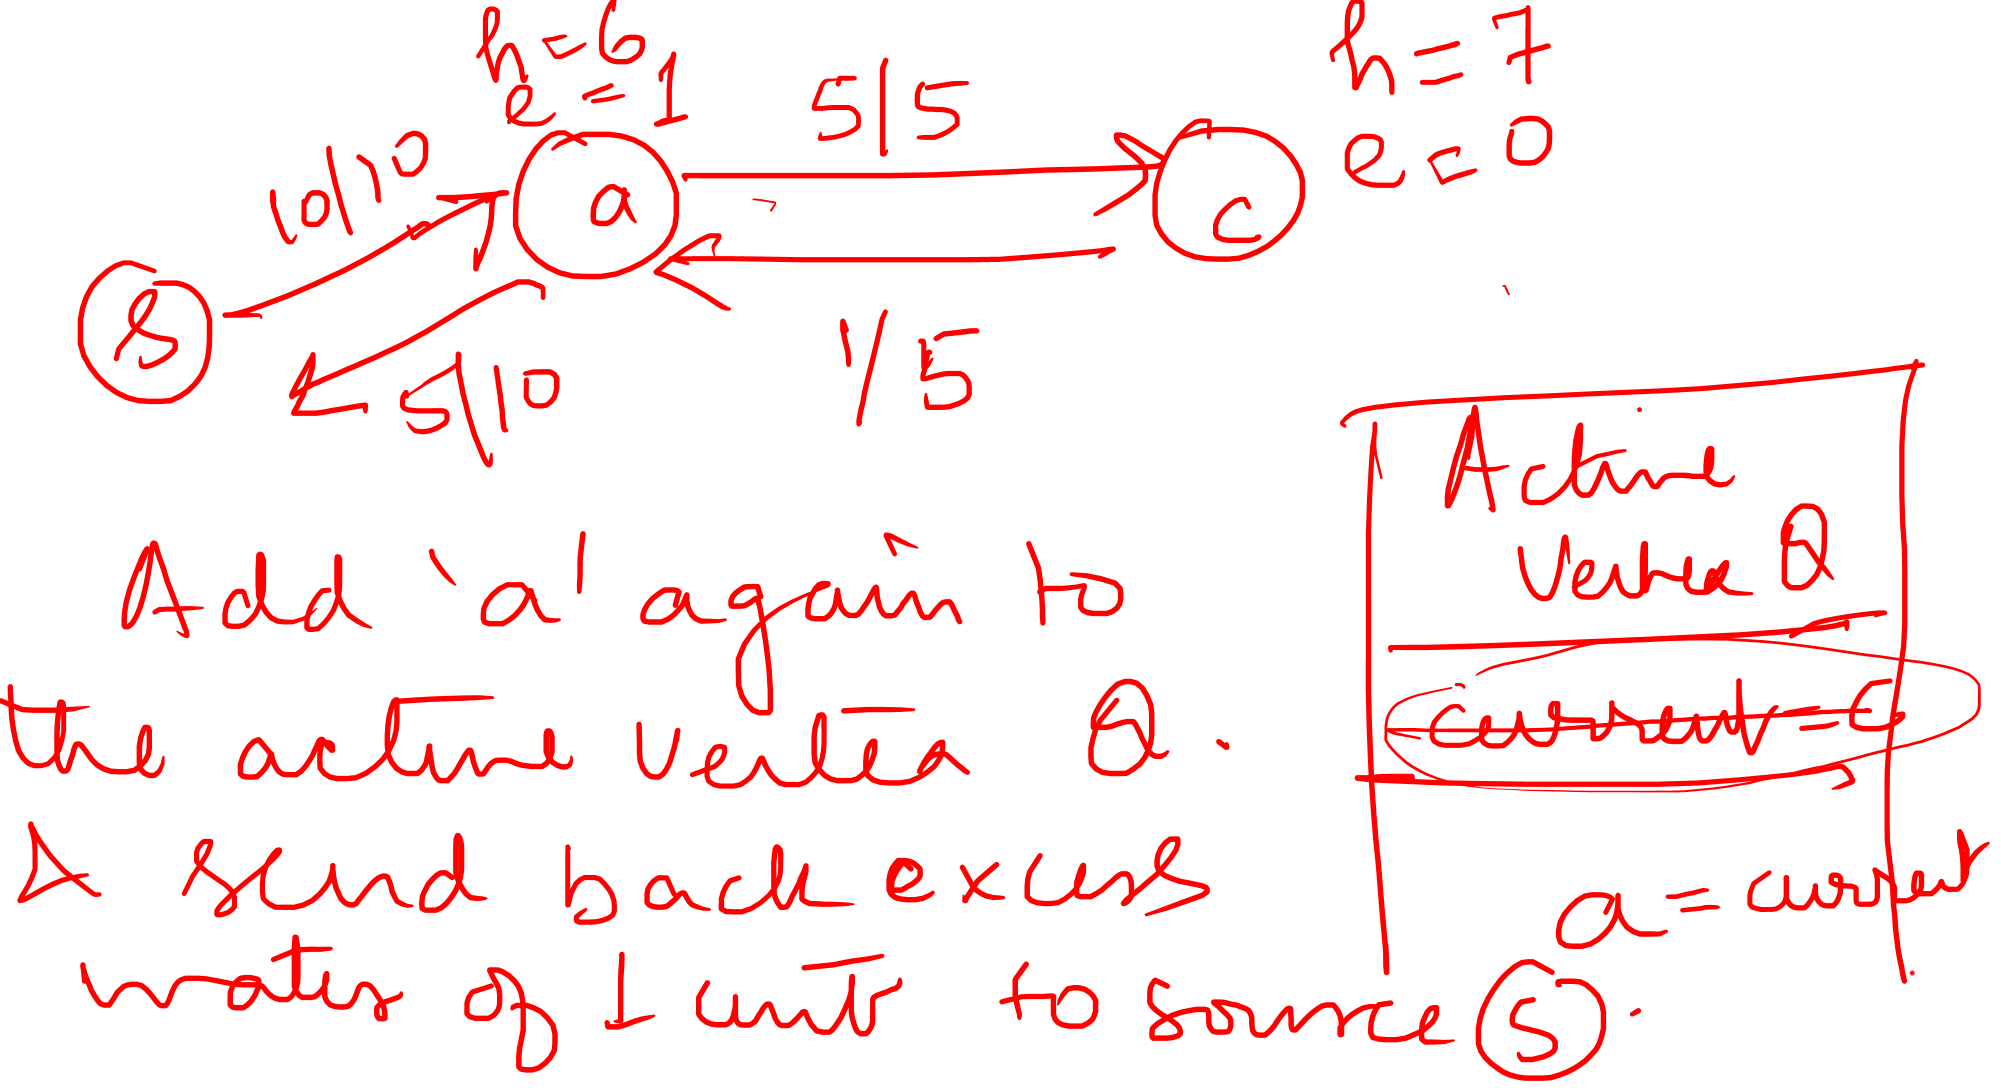 h=6
e=1
h=7
e=0
10/10
5|5
a
c
s
5/10
1/5
Active
Vertex Q
current=c
a=current
Add 'a' again to
the active vertex Q.
& send back excess
water of 1 unit to source S.